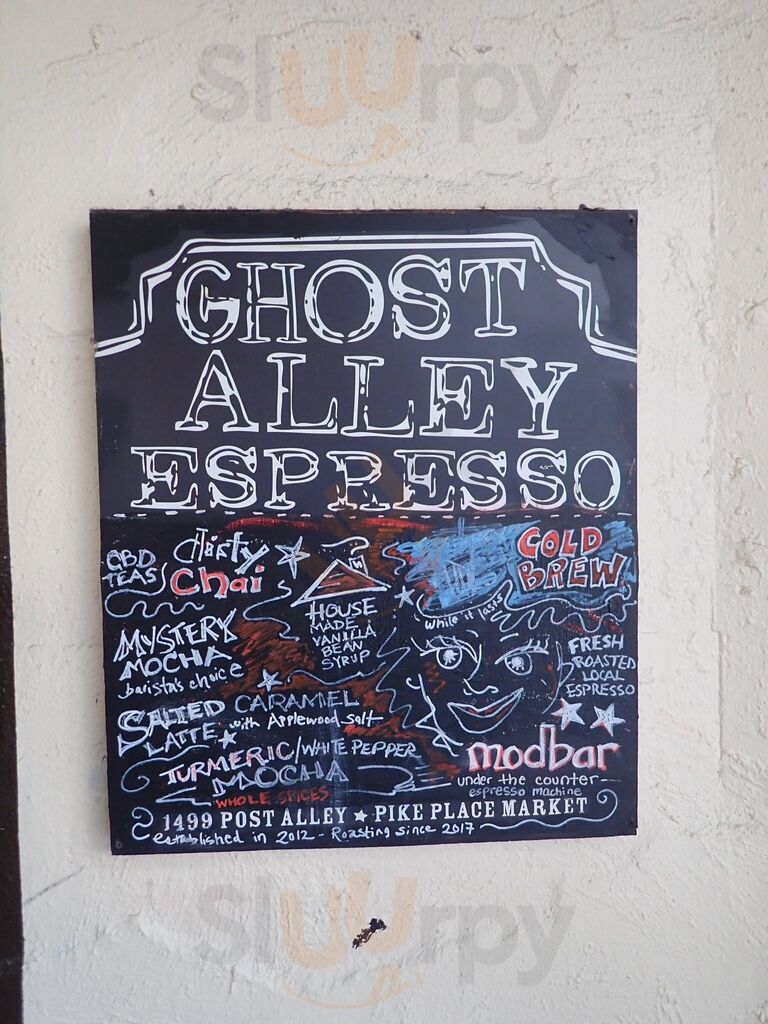 Sluurpy
GHOST
ALLEY
ESPRESSO
CBD
TEAS
dirty
Chai
HOUSE
MADE
VANILLA
BEAN
SYRUP
COLD
BREW
while it lasts
MYSTERY
MOCHA
barista's choice
FRESH
ROASTED
LOCAL
ESPRESSO
SALTED CARAMEL
LATTE with Applewood salt
TURMERIC/WHITE PEPPER
MOCHA
WHOLE SPICES
modbar
under the counter
espresso machine
1499 POST ALLEY ★ PIKE PLACE MARKET
established in 2012 - Roasting since 2017
Sluurpy